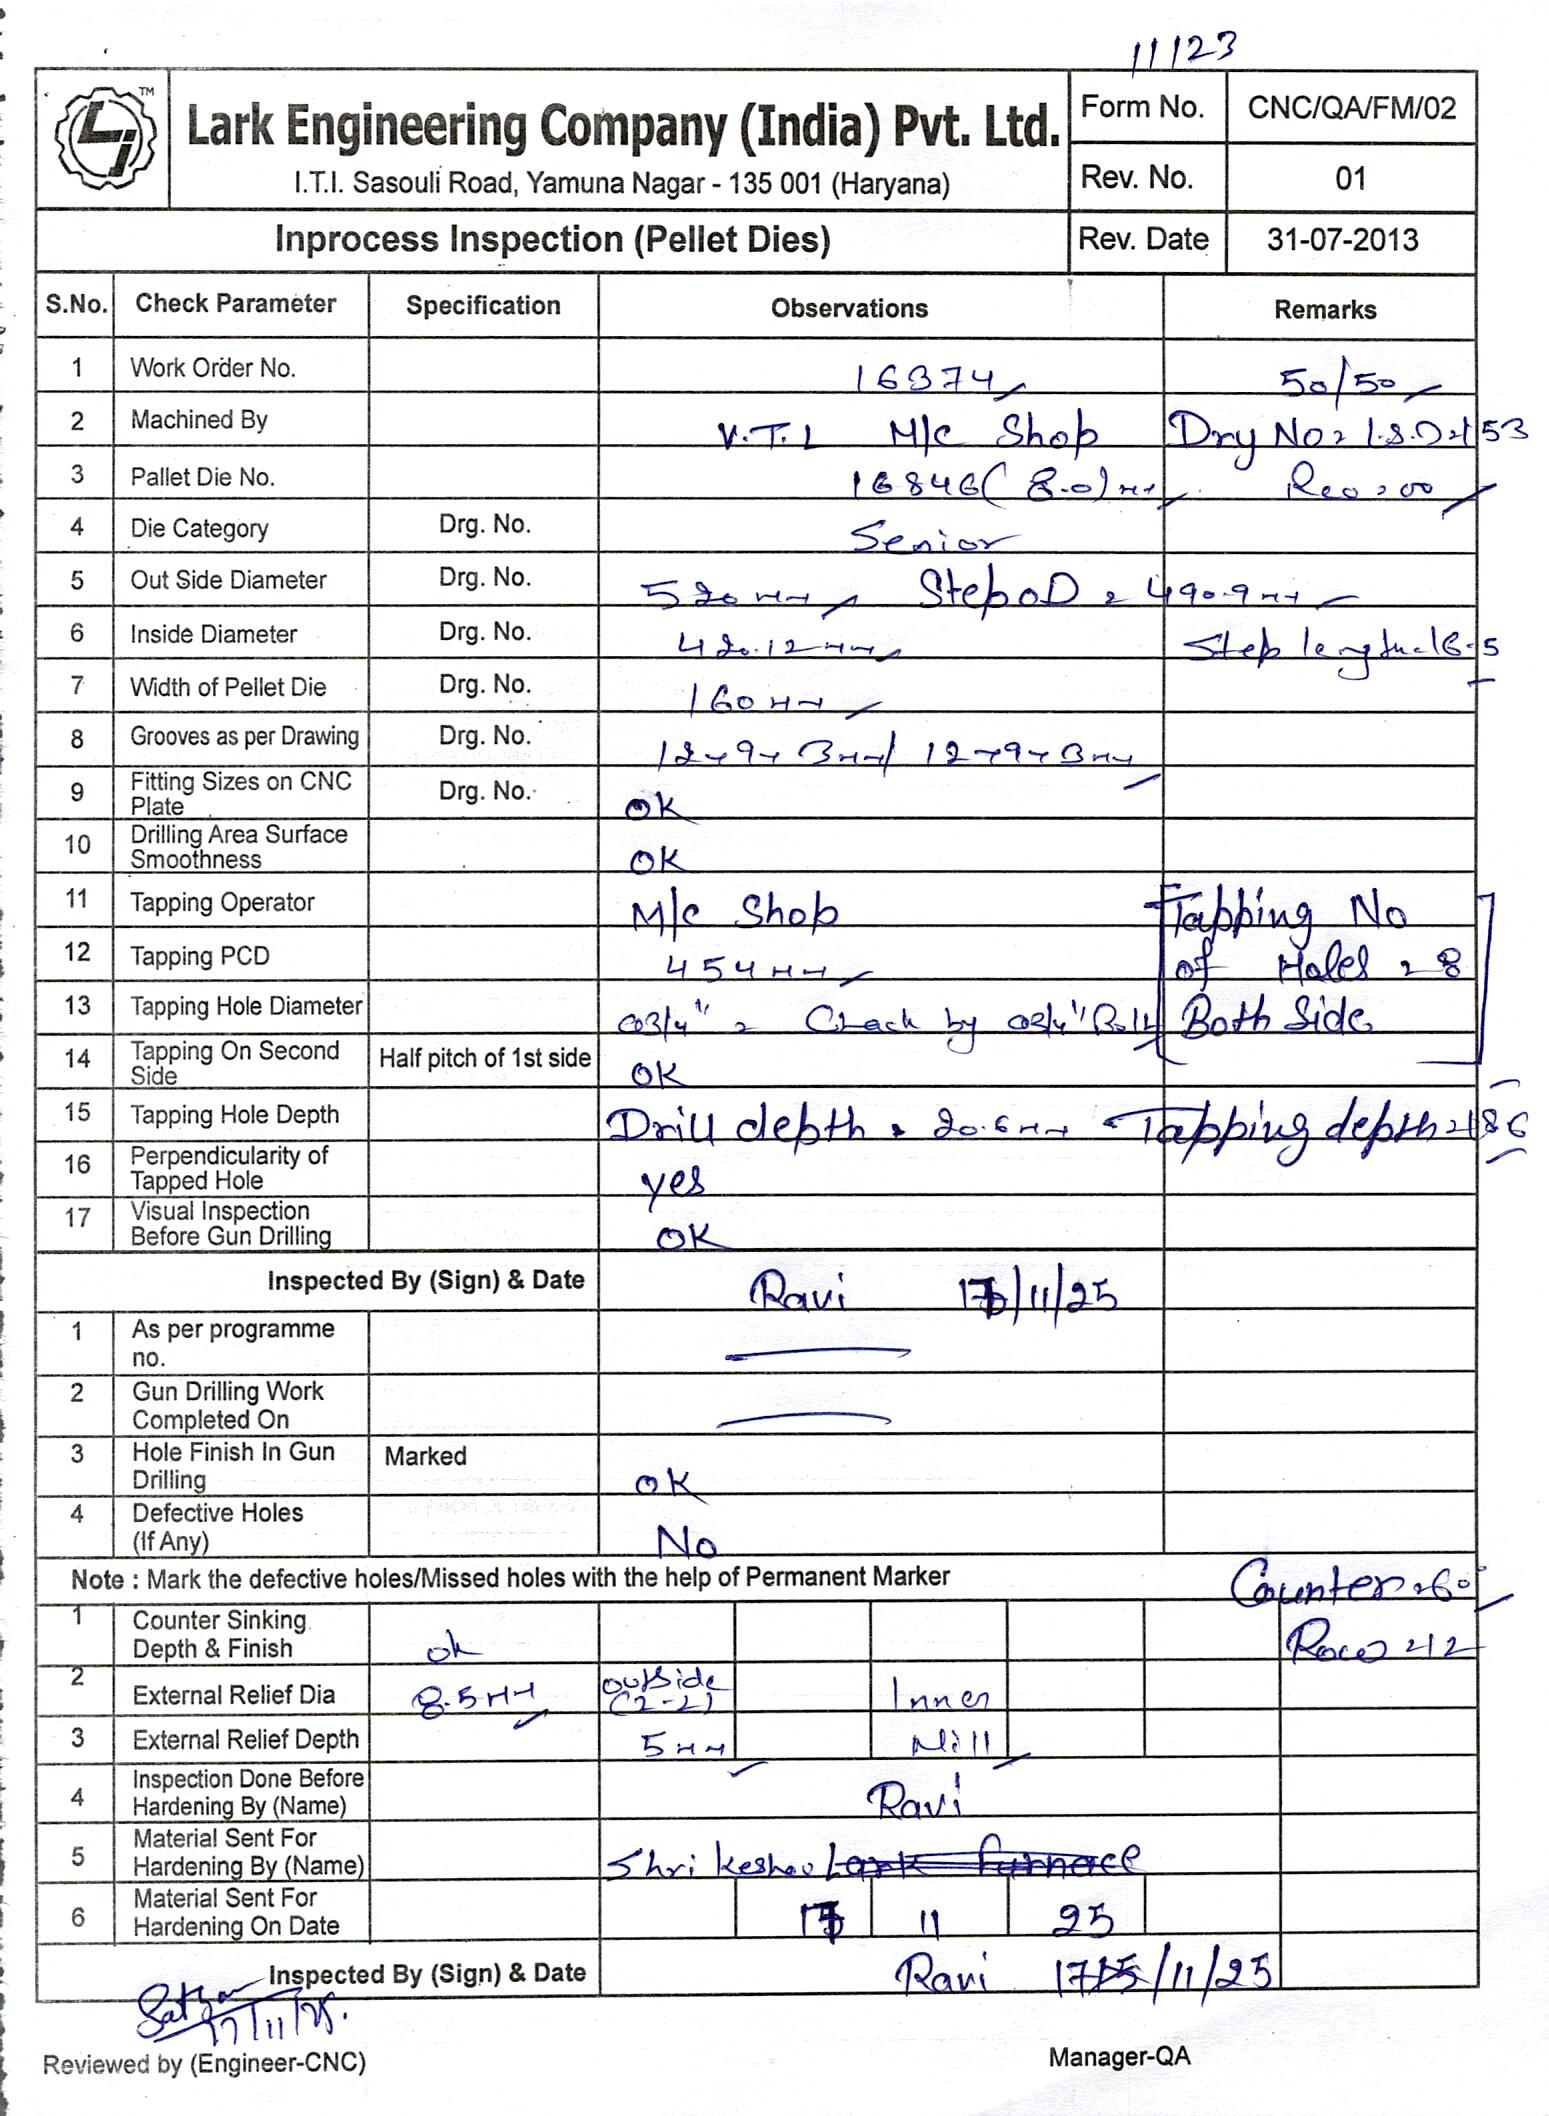 11123
TM
Lark Engineering Company (India) Pvt. Ltd.
I.T.I. Sasouli Road, Yamuna Nagar - 135 001 (Haryana)
Form No. CNC/QA/FM/02
Rev. No. 01
Inprocess Inspection (Pellet Dies) Rev. Date 31-07-2013
S.No. Check Parameter Specification Observations Remarks
1 Work Order No. 16374 50/50
2 Machined By V.T.L M/c Shop Dry No = I.S.D-153
3 Pallet Die No. 16846 (8.0) mm Rev = 00
4 Die Category Drg. No. Senior
5 Out Side Diameter Drg. No. 520 mm Step OD = 490.9 mm
6 Inside Diameter Drg. No. 420.12 mm Step length = 16.5
7 Width of Pellet Die Drg. No. 160 mm
8 Grooves as per Drawing Drg. No. 12×9×3mm/ 12×9×3mm
9 Fitting Sizes on CNC Plate Drg. No. OK
10 Drilling Area Surface Smoothness OK
11 Tapping Operator M/c Shop Tapping No
12 Tapping PCD 454 mm of Holes = 8
13 Tapping Hole Diameter 3/4" = Check by 3/4" Bolt Both Side
14 Tapping On Second Side Half pitch of 1st side OK
15 Tapping Hole Depth Drill depth = 20.6 mm Tapping depth = 186
16 Perpendicularity of Tapped Hole yes
17 Visual Inspection Before Gun Drilling OK
Inspected By (Sign) & Date Ravi 17/11/25
1 As per programme no.
2 Gun Drilling Work Completed On
3 Hole Finish In Gun Drilling Marked OK
4 Defective Holes (If Any) No
Note : Mark the defective holes/Missed holes with the help of Permanent Marker Counter = 60°
1 Counter Sinking Depth & Finish ok 412
2 External Relief Dia 8.5 mm outside (2-2) Inner
3 External Relief Depth 5 mm Nill
4 Inspection Done Before Hardening By (Name) Ravi
5 Material Sent For Hardening By (Name) Shri Keshav
6 Material Sent For Hardening On Date 17 11 25
Inspected By (Sign) & Date Ravi 17/11/25
17/11/25.
Reviewed by (Engineer-CNC) Manager-QA